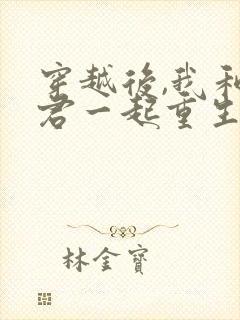 穿越後,我和
君一起重生
林金寶